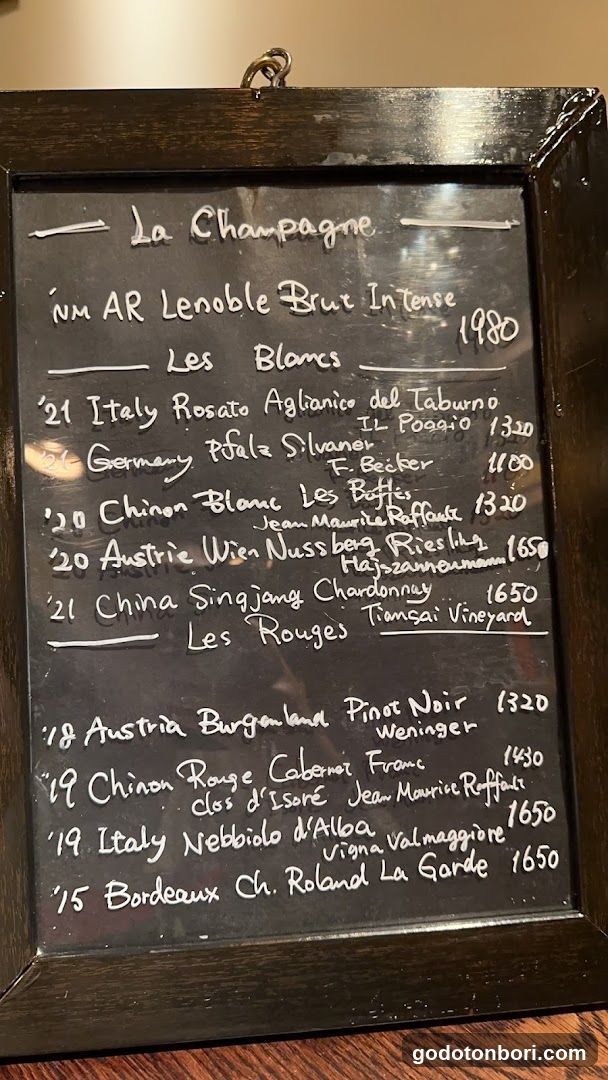 La Champagne
'NM AR Lenoble Brut Intense
1980
Les Blancs
'21 Italy Rosato Aglianico del Taburno
IL Poggio 1320
'21 Germany Pfalz Silvaner
F. Becker 1100
'20 Chinon Blanc Les Buffes
Jean Maurice Raffault 1320
'20 Austrie Wien Nussberg Riesling
Hajszanneumann 1650
'21 China Singjang Chardonnay 1650
Tiansai Vineyard
Les Rouges
'18 Austria Burgenland Pinot Noir 1320
Weninger
'19 Chinon Rouge Cabernet Franc 1430
clos d'Isoré Jean Maurice Raffault
'19 Italy Nebbiolo d'Alba 1650
Vigna Valmaggiore
'15 Bordeaux Ch. Roland La Garde 1650
godotonbori.com